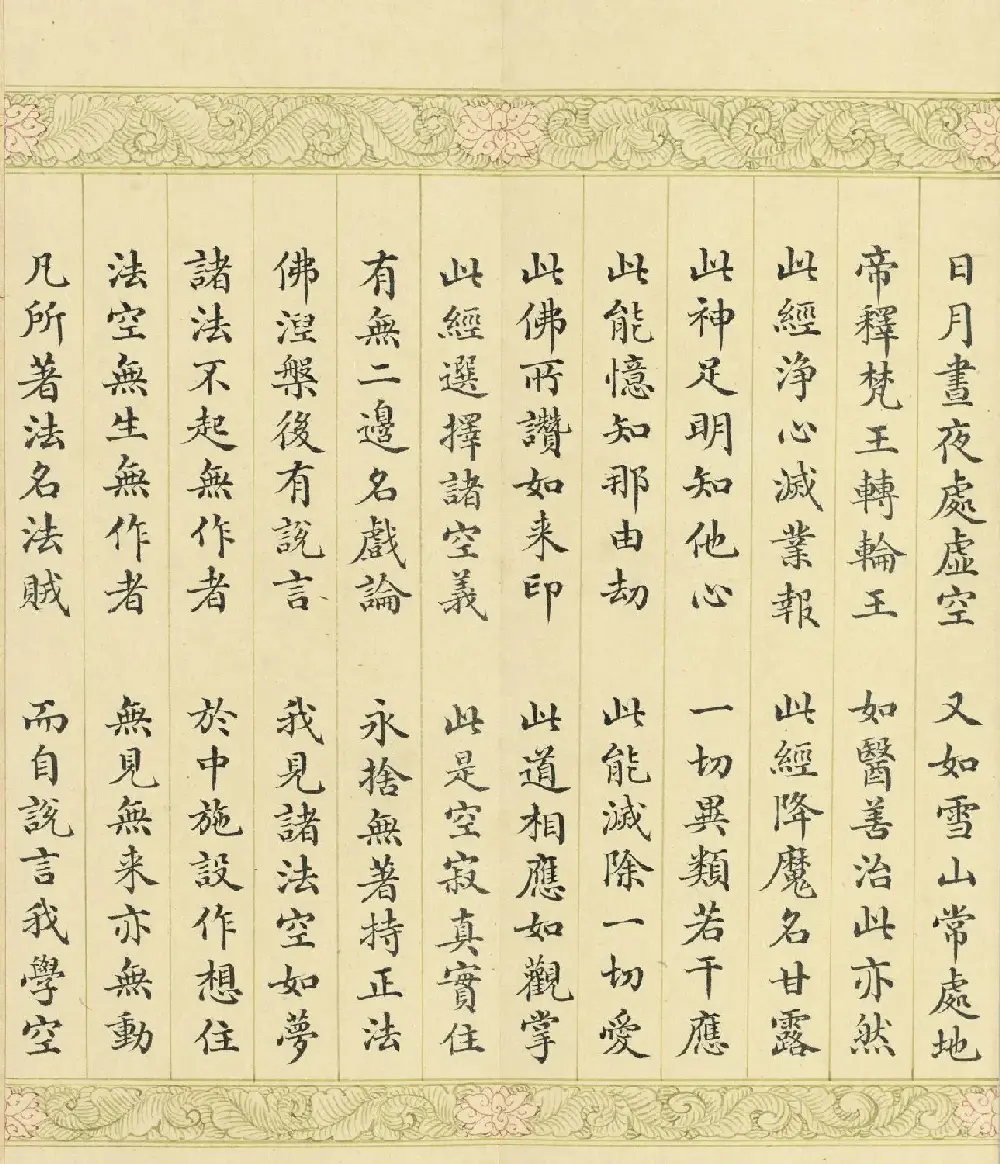 日月晝夜處虛空　又如雪山常處地
帝釋梵王轉輪王　如醫善治此亦然
此經淨心滅業報　此經降魔名甘露
此神足明知他心　一切異類若干應
此能憶知那由劫　此能滅除一切愛
此佛所讚如来印　此道相應如觀掌
此經選擇諸空義　此是空寂真實住
有無二邊名戲論　永捨無著持正法
佛涅槃後有說言　我見諸法空如夢
諸法不起無作者　於中施設作想住
法空無生無作者　無見無来亦無動
凡所著法名法賊　而自說言我學空